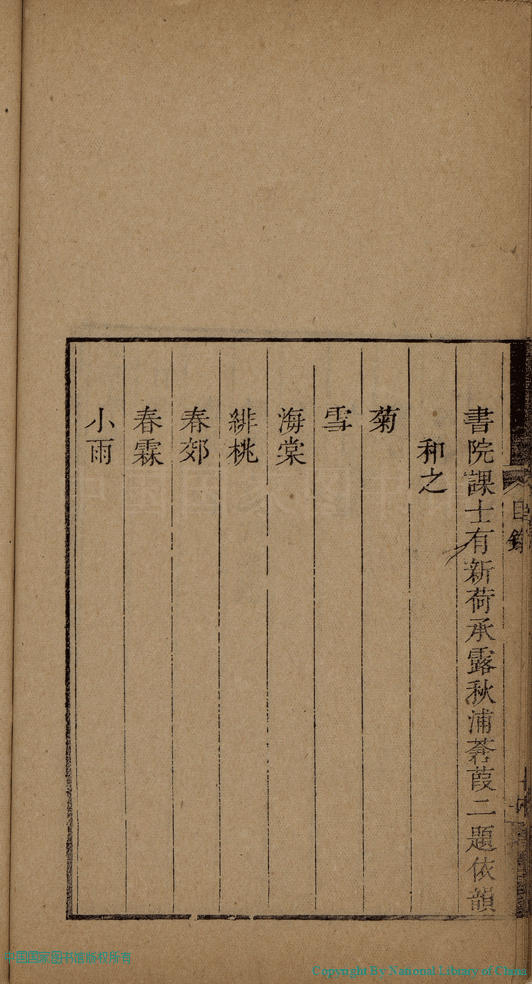 書院課士有新荷承露秋浦蒼葭二題依韻
和之
菊
雪
海棠
緋桃
春郊
春霖
小雨
目錄
中国国家图书馆版权所有
Copyright By National Library of China